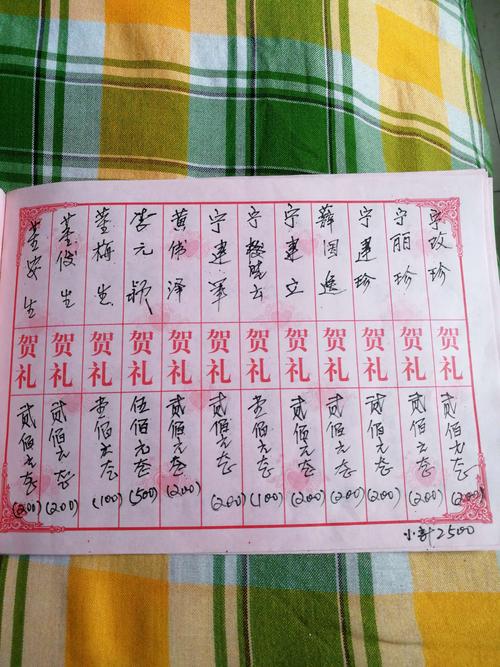 宁玫珍 贺礼 贰佰元整 (200)
宁丽珍 贺礼 贰佰元整 (200)
宁建珍 贺礼 贰佰元整 (200)
薛国逸 贺礼 贰佰元整 (200)
宁建立 贺礼 贰佰元整 (200)
宁云 贺礼 壹佰元整 (100)
宁建军 贺礼 贰佰元整 (200)
黄伟泽 贺礼 贰佰元整 (200)
李元颖 贺礼 伍佰元整 (500)
董梅生 贺礼 壹佰元整 (100)
董俊生 贺礼 贰佰元整 (200)
董安生 贺礼 贰佰元整 (200)
小计2500